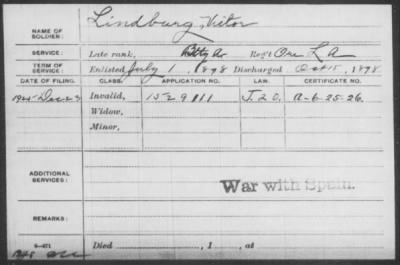 NAME OF SOLDIER: Lindburg, Victor
SERVICE: Late rank, Batty Reg't Ore L A
TERM OF SERVICE: Enlisted July 1, 1898 Discharged Oct 15, 1898
DATE OF FILING. CLASS. APPLICATION NO. LAW. CERTIFICATE NO.
1925 Dec 23 Invalid, 1529111 J. 20. A-6-25-26.
Widow,
Minor,
ADDITIONAL SERVICES: War with Spain.
REMARKS:
Died , 1 , at